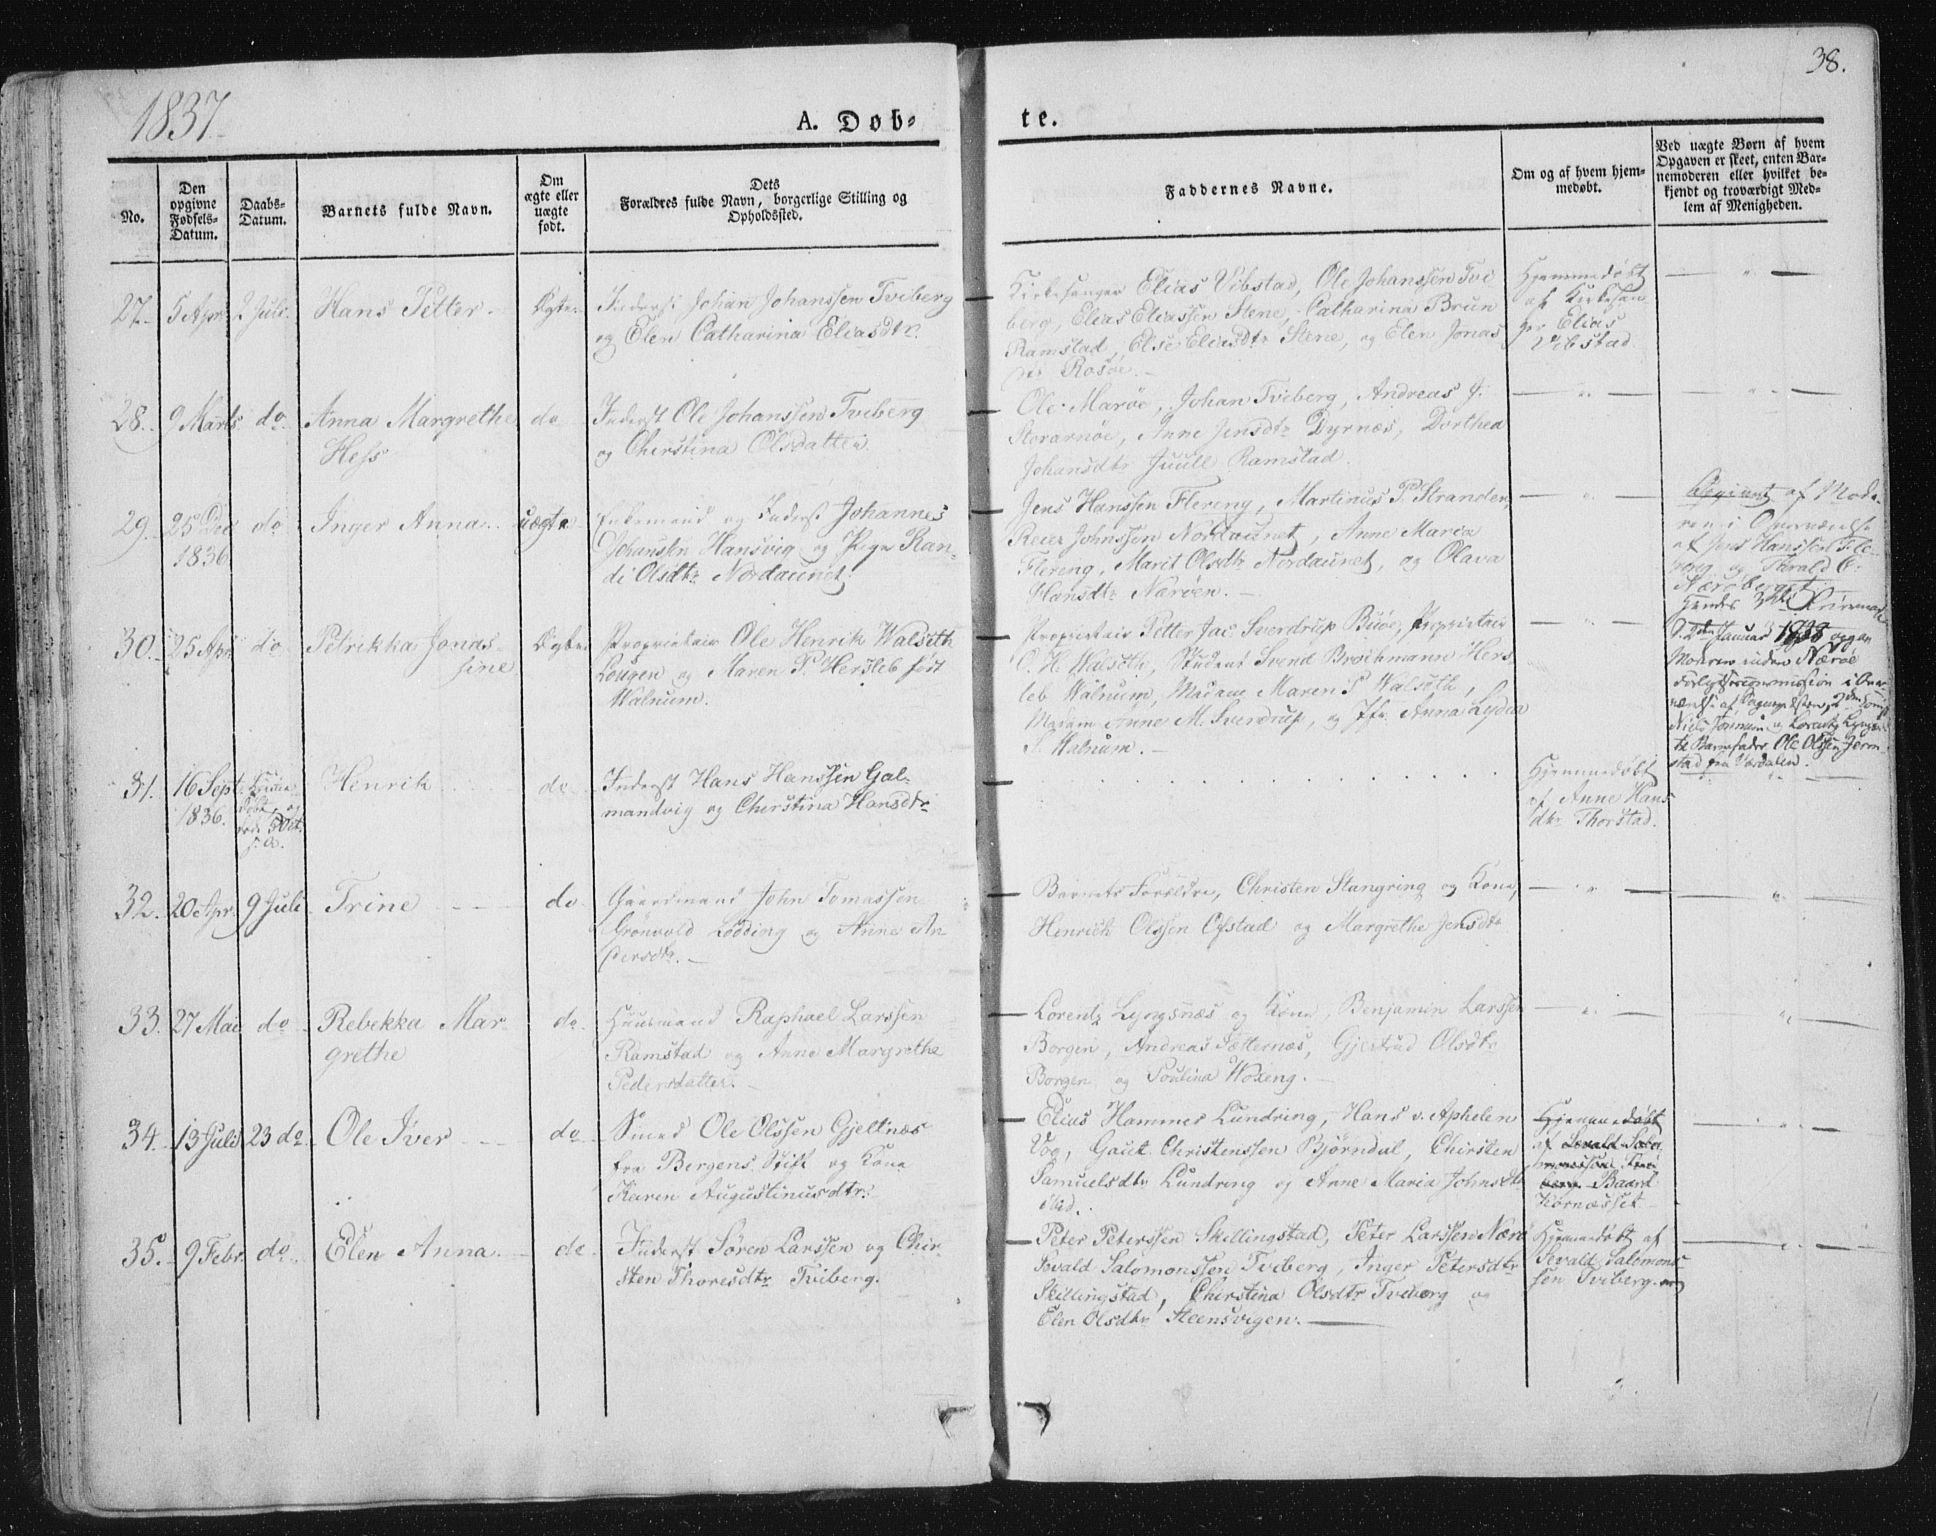 1837.
38.
A. Døb-
te.
No.
Den opgivne Fødsels-Datum.
Daabs-Datum.
Barnets fulde Navn.
Om ægte eller uægte født.
Dets
Forældres fulde Navn, borgerlige Stilling og
Opholdssted.
Faddernes Navne.
Om og af hvem hjem-
medøbt.
Ved uægte Børn af hvem
Opgaven er skeet, enten Bar-
nemoderen eller hvilket be-
kjendt og troværdigt Med-
lem af Menigheden.
27. 5 Apr. 2 Juli. Hans Petter. Ægte.
Inderst Johan Johanssen Tviberg
og Elen Catharina Eliasdtr.
Kirkesanger Elias Vibstad, Ole Johanssen Tvi
berg, Elias Eliassen Stene, Catharina Brun
Ramstad, Else Eliasdtr Stene, og Elen Jonas
dtr Rosøe.
Hjemmedøbt
af Kirkesan
ger Elias
Vibstad.
28. 9 Marts do. Anna Margrethe do
Hess
Inderst Ole Johanssen Tviberg
og Cherstina Olsdatter
Ole Marøe, Johan Tviberg, Andreas J.
Storarnøe, Anne Jensdtr Dyrnæs, Dorthea
Johansdtr Juull Ramstad.
29. 25 Dec do Inger Anna. uægte
1836.
Enkemand og Inderst Johannes
Johansen Hansvig og Pige Ran-
di Olsdtr Nordaunet.
Jens Hanssen Flereng, Martinus P. Strander,
Reier Johnssen Nordaunet, Anne Maria
Flereng, Marit Olsdtr Nordaunet, og Olava
Hansdtr Nærøen.
af Mode
ren i Overværelse
af Jens Hanssen Fle-
reng og Harald
30. 25 Apr do Petrikka Jonas- Ægte.
sine.
Proprietair Ole Henrik Walseth
Lougen og Maren P. Hersleb født
Walnum.
Proprietair Petter Jac Sverdrup Buøe, Proprietair
O. H. Walseth, Student Svend Brochmann Hers
leb Walnum, Madame Maren P Walseth,
Madam Anne M. Sverdrup, og Jfr. Anna Lydia
S. Walnum.
Januar 1838 opgav
Moderen inden Nærøe
Forligelsescommission i Over
Barnefader Ole Olssen Jerm
stad fra Værdalen.
31. 16 Sept Henrik do
1836.
Inderst Hans Hanssen Gal-
mandvig og Cherstina Hansdtr
Hjemmedøbt
af Anne Hans
dtr Thorstad.
32. 20 Apr. 9 Juli Trine do
Gaardmand John Tomassen
Grönvold Lödding og Anne An-
dersdtr.
Barnets Forældre, Christen Stangring og Kone,
Henrich Olssen Ofstad og Margrethe Jensdtr
33. 27 Mai do Rebekka Mar- do.
grethe
Huusmand Raphael Larssen
Ramstad og Anne Margrethe
Pedersdatter.
Lorentz Lyngsnæs og Kone, Benjamin Larssen
Borgen, Andreas Sætternæs, Gjertrud Olsdtr
Borgen og Poulina Woxeng.
34. 13 Juli 23 do. Ole Iver do
Smed Ole Olssen Gjeltnæs
fra Bergens Stift og Kone
Karen Augustinusdtr.
Elias Hammer Lundring, Hans v. Aphelen
Vog, Gaut Christenssen Bjørndal, Chirsten
Samuelsdtr Lundring og Anne Maria Johnsdtr
ibid.
Hjemmedøbt
af Sevald Salo
Baard
Kornæsset
35. 9 Febr. do Elen Anna. do.
Inderst Sören Larssen og Chir-
sten Thoresdtr Tviberg.
Peter Peterssen Skillingstad, Peter Larssen Nærø
Sevald Salomonssen Tviberg, Inger Petersdtr
Skillingstad, Cherstina Olsdtr Tviberg og
Elen Olsdtr Steensvigen.
Hjemmedøbt af
Sevald Salomons-
sen Tviberg.